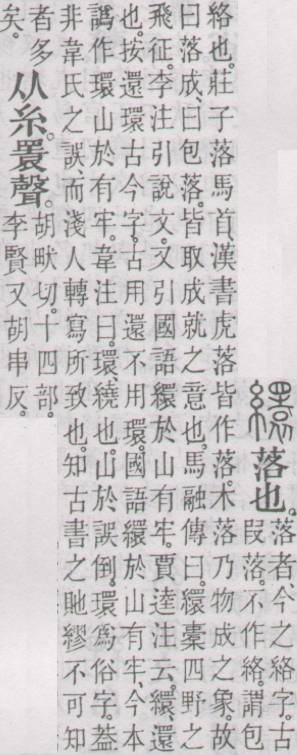 繯落也。落者、今之絡字。古
叚落。不作絡。謂包
絡也。莊子落馬首、漢書虎落皆作落。木落乃物成之象。故
曰落成、曰包落。皆取成就之意也。馬融傳曰。繯橐四野之
飛征。李注引說文。又引國語繯於山有牢。賈逵注云。繯、還
也。按還環古今字。古用還不用環。國語繯於山有牢、今本
譌作環山於有牢。韋注曰。環、繞也。山於誤倒。環爲俗字。葢
非韋氏之誤、而淺人轉寫所致也。知古書之貤繆不可知
者多
矣。
从糸。瞏聲。胡畎切。十四部。
李賢又胡串反。